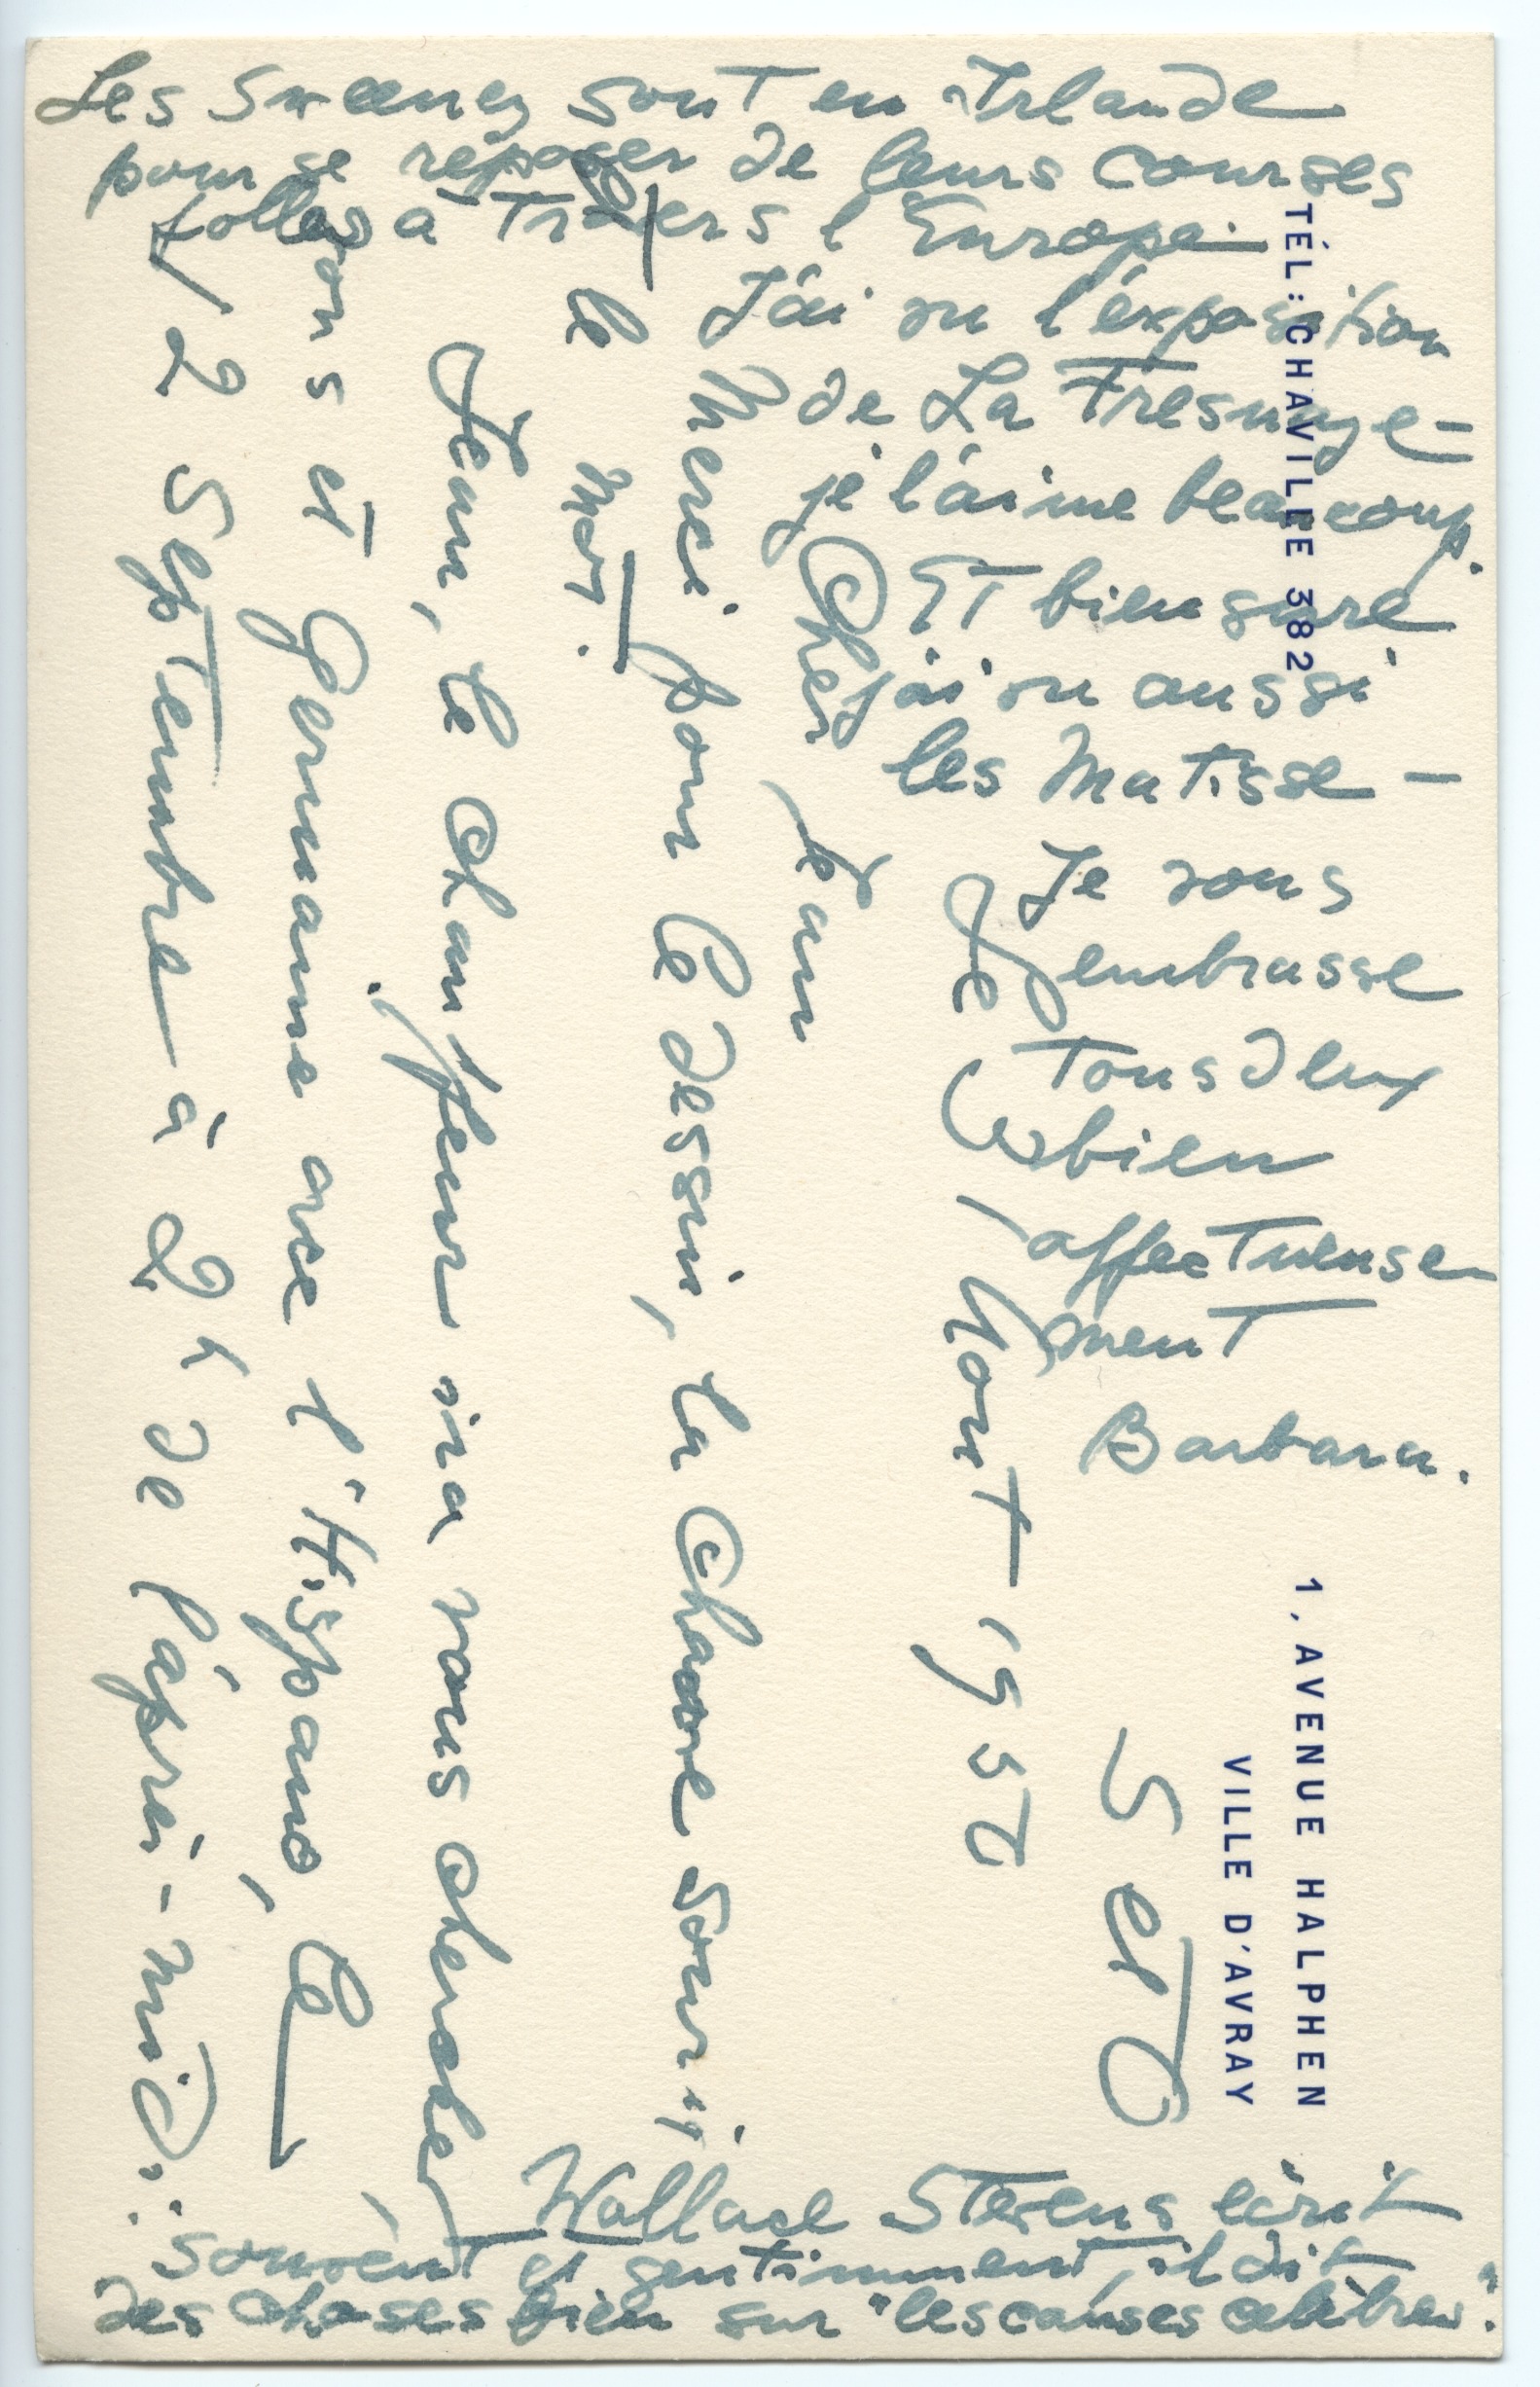 TÉL: CHAVILLE 382
1. AVENUE HALPHEN
VILLE D'AVRAY
Le Aout 1950
Cher Jean
Merci pour le dessin, la chauve souris,
et le mot.
Jean, le chauffeur ira vous chercher,
vous et Germaine avec l'Hispano, le
12 Septembre à 2h de l'après-midi.
Wallace Stevens écrit
souvent et gentimment, il dit
des choses bien sur "les causes célèbres".
Les Sweeney sont en Irlande
pour se reposer de leurs courses
folles à travers l'Europe.
J'ai vu l'exposition
de La Fresnaye -
je l'aime beaucoup.
Et bien sure
j'ai vu aussi
les Matisse -
Je vous
embrasse
tous deux
bien
affectueuse-
ment
Barbara.